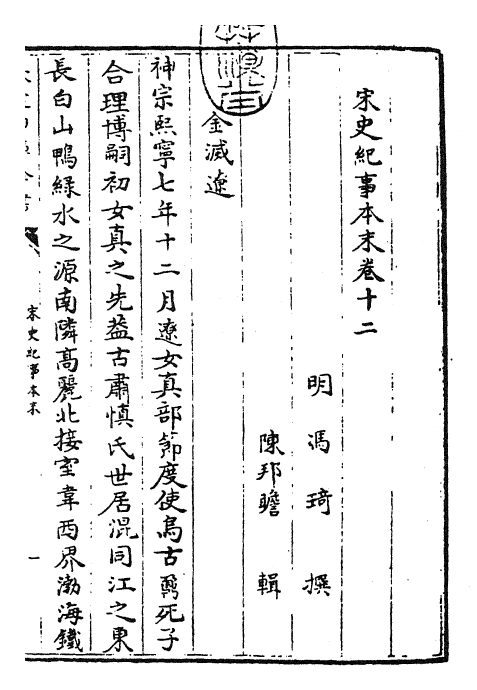 宋史紀事本末卷十二
明 馮琦 撰
陳邦瞻 輯
金滅遼
神宗熙寧七年十二月遼女真部節度使烏古鼐死子
合理博嗣初女真之先葢古肅慎氏世居混同江之東
長白山鴨緑水之源南隣髙麗北接室韋西界渤海鐵
宋史紀事本末
一